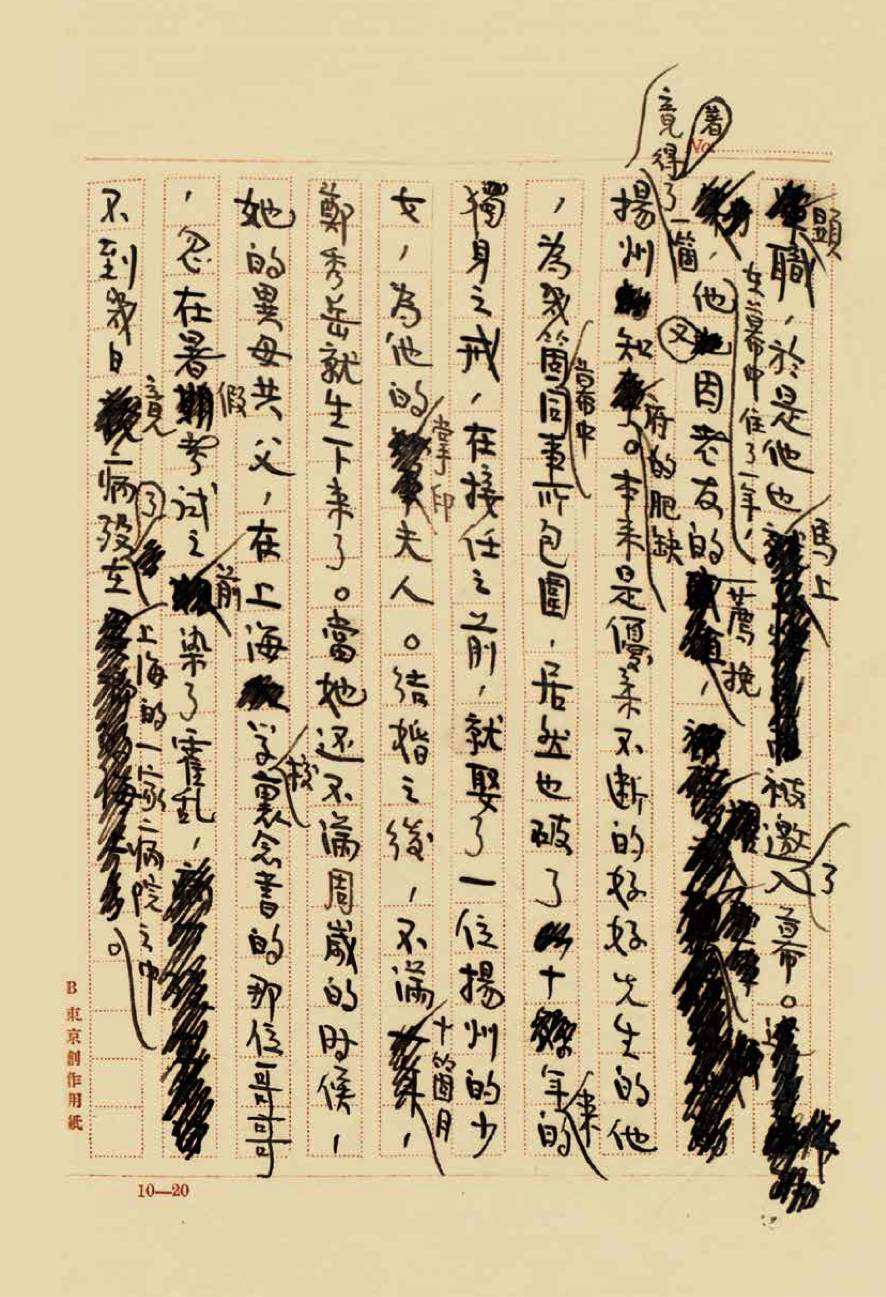 No.
顯職,於是他也馬上被邀入了幕。
在幕中住了一年,他又因老友的薦挽,
著竟得了一箇
揚州知府的肥缺。本来是優柔不断的好好先生的他
,為幾箇昔幕中同事所包圍,居然也破了十年来的
獨身之戒,在接任之前,就娶了一位揚州的少
女,為他的掌印夫人。结婚之後,不滿十箇月,
鄭秀岳就生下来了。當她还不滿周歲的时候,
她的異母共父,在上海学校裏念書的那位哥哥
,忽在暑假考试之前染了霍乱,
不到幾日竟病殁在了上海的一家病院之中。
B 東京創作用紙
10—20